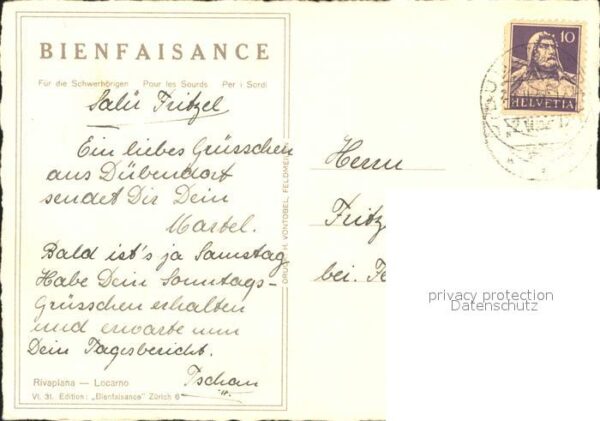 BIENFAISANCE
Für die Schwerhörigen Pour les Sourds Per i Sordi
Salü Fritzel
Ein liebes Grüsschen
aus Dübendorf
sendet Dir Dein
Martel.
Bald ist's ja Samstag
Habe Dein Sonntags-
Grüsschen erhalten
und erwarte nun
Dein Tagesbericht.
Tschau
Rivapiana — Locarno
VI. 31. Edition: „Bienfaisance" Zürich 6
DRUCK H. VONTOBEL, FELDMEILEN
10
HELVETIA
Herrn
Fritz
bei.
privacy protection
Datenschutz